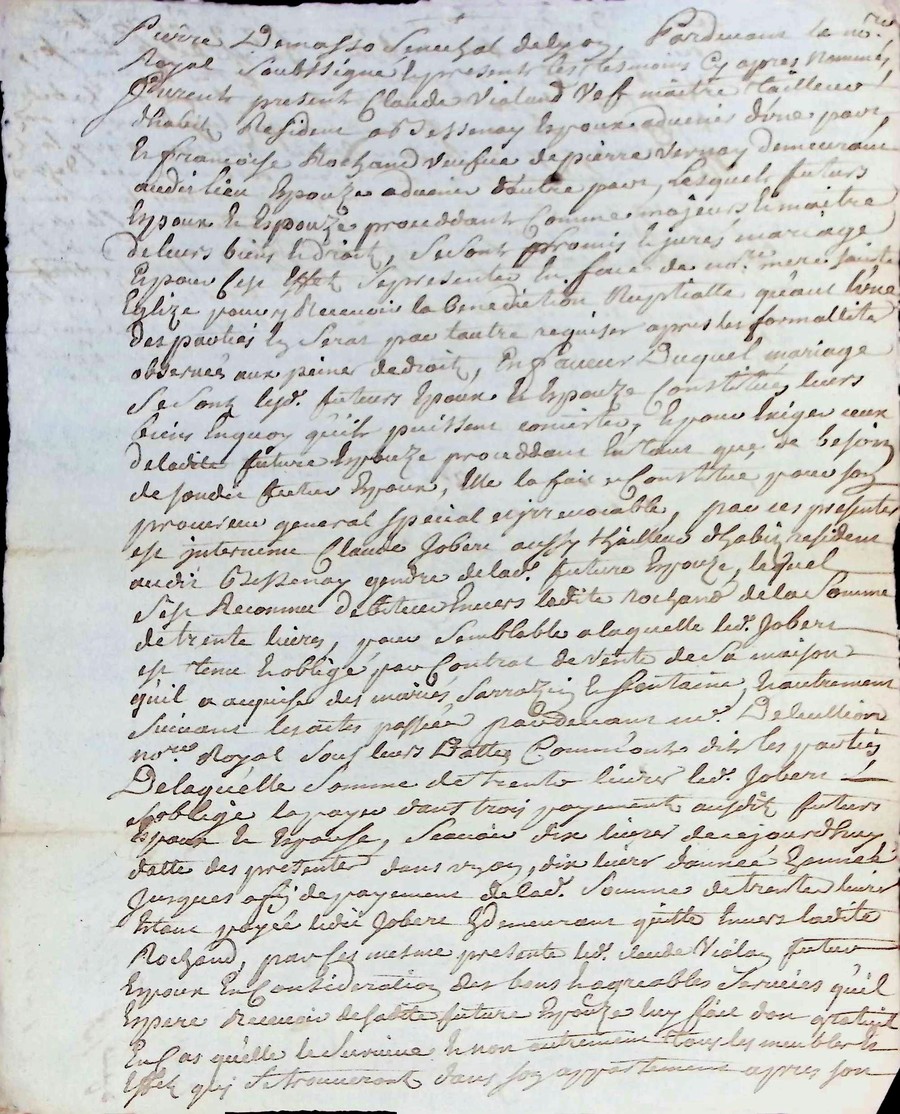 Pierre Demasso Senechal delyon, Pardevant le nre.
Royal soubsigné & presents les tesmoins cy apres nommés
furent present Claude Vialand vef maitre tailleur
dhabit Resident a Bessenay Epoux advenir d'une part
Et francoise Rochand veufve de pierre Vernay demeurant
audit lieu Epouze advenir d'autre part, Lesquels futurs
Epoux & Epouze proceddant Comme majeurs & maitre
de leurs biens & droit, se sont promis & jurés mariage
Et pour cest Effet se presenter En face de notre mere sainte
Eglize pour y Recevoir la benediction Nuptialle quant l'une
des parties En sera par lautre requise apres les formallite
observées aux peines de droit, En faveur Duquel mariage
se sont lesd. futurs Epoux & Epouze Constitué leurs
biens En quoy qu'ils puissent concister, & pour Exiger ceux
de ladite future Epouze proceddant En tant que de besoin
de sondit futur Epoux, Elle la fait & Constitue pour son
procureur general special et irrevocable, par ces presentes
est intervenu Claude Jobert aussy thailleur dhabit resident
audit Bessenay gendre de lad. future Epouze, lequel
s'est Reconnu debiteur Envers ladite Rochand de la somme
de trente livres, pour semblable a laquelle led. Jobert
est tenu & oblige par Contrat de vente de sa maison
quil a acquise des mariés Sarrazin & fontaine, & autrement
suivant les actes passée pardevant me.
nore. Royal sous leurs Dattes Comm'ont dit les parties
De laquelle somme de trente livres led. Jobert
s'oblige la payer dans trois payement ausdit futurs
Epoux & Epouse, scavoir dix livres de ce jourdhuy
datte des presentes dans un an, dix livres d'année En année
jusques a fin de payement de lad. Somme de trente livres
Etant payée ledit Jobert En demeurant quitte Envers ladite
Rochand, par ces mesme presente led. claude Vialan futur
Epoux En Consideration des bons & agreables services qu'il
Espere Recevoir de ladite future Epouze luy fait don gratuit
En Cas qu'elle le survive & non autrement tous les meubles &
Effet qui se trouveront dans son appartement apres son